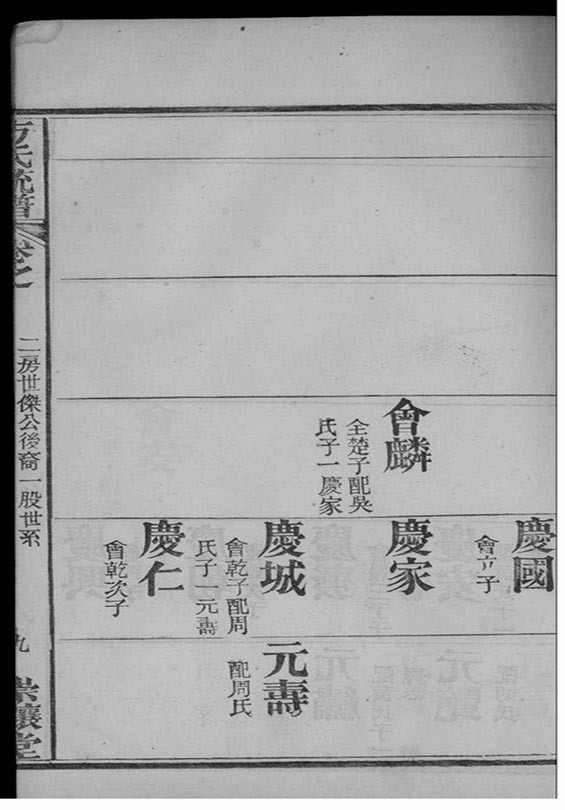 會麟
全楚子配吳
氏子一慶家
慶國
會立子
慶家
慶城
會乾子配周
氏子一元壽
慶仁
會乾次子
元壽
配周氏
方氏統譜
卷之
二房世傑公後裔一股世系
九